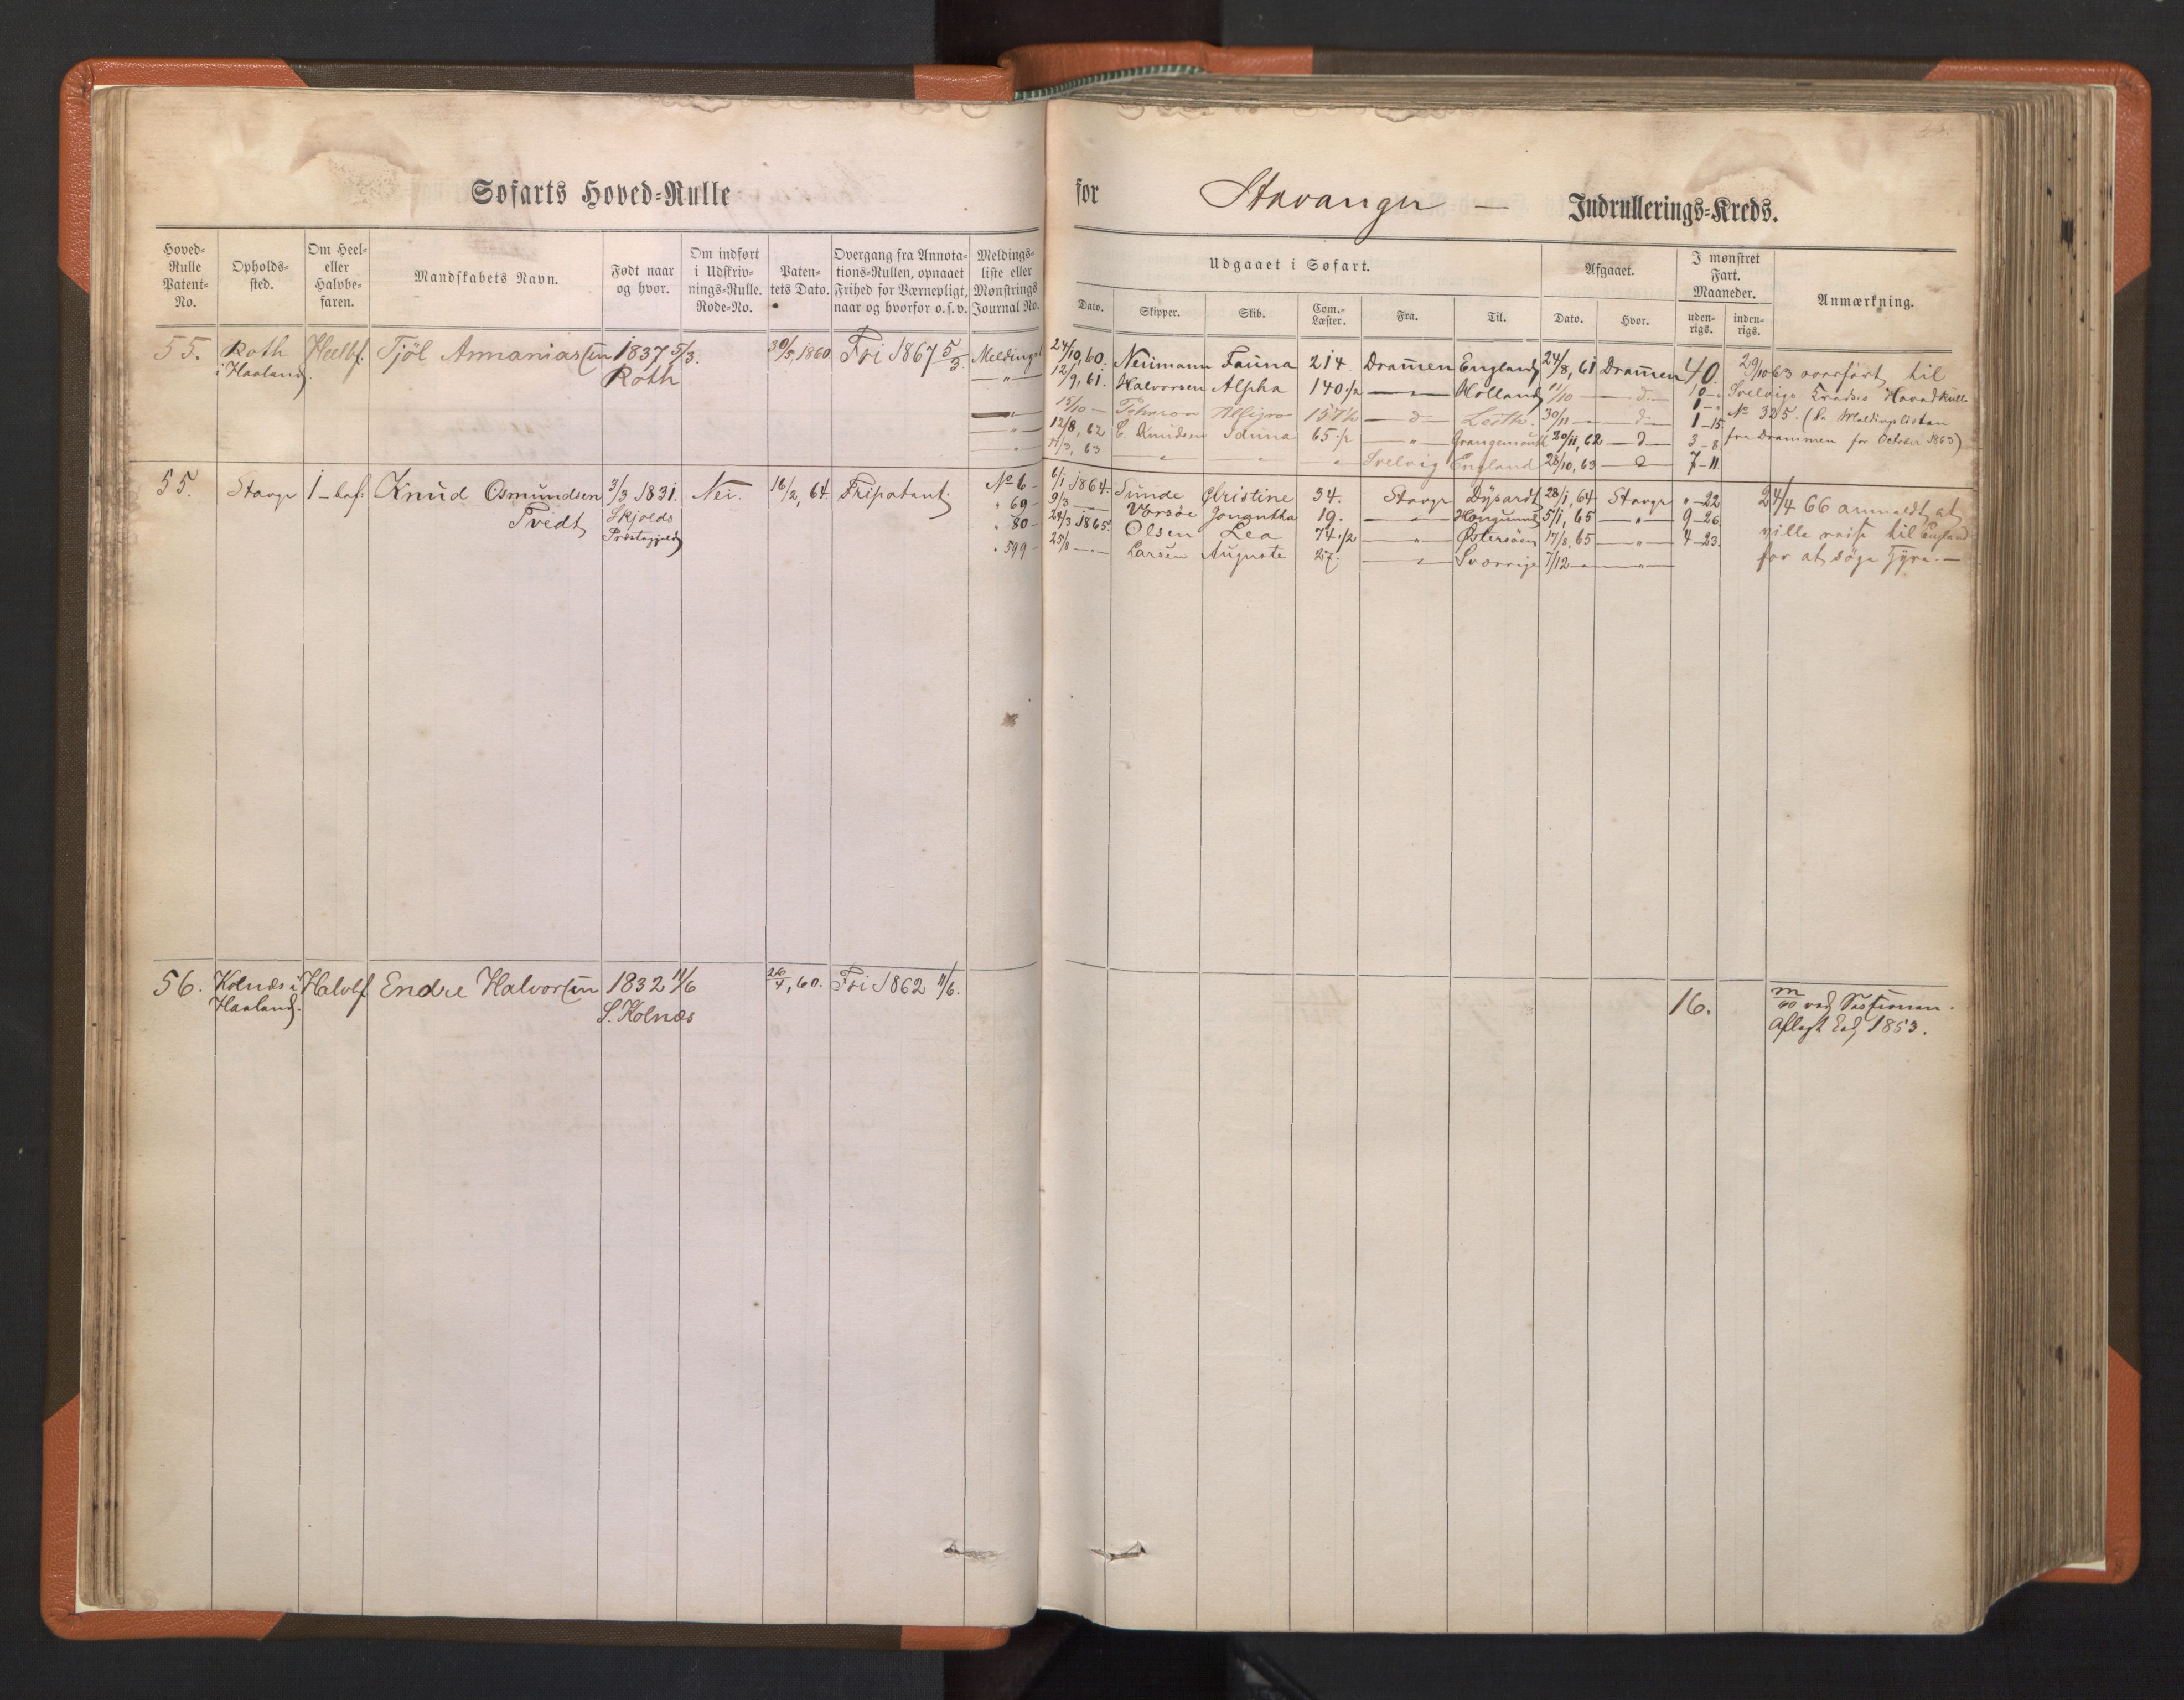 Søfarts Hoved-Rulle
for Stavanger — Indrullerings-Kreds.
Hoved-Rulle Patent-No.
Opholds-sted.
Om Heel- eller Halvbe-faren.
Mandskabets Navn.
Født naar og hvor.
Om indført i Udskriv-nings-Rulle. Rode-No.
Paten-tets Dato.
Overgang fra Annota-tions-Rullen, opnaaet Frihed for Værnepligt, naar og hvorfor o.s.v.
Meldings-liste eller Mønstrings Journal No.
Udgaaet i Søfart.
Dato.
Skipper.
Skib.
Com.-Læster.
Fra.
Til.
Afgaaet.
Dato.
Hvor.
I mønstret Fart. Maaneder.
uden-rigs.
inden-rigs.
Anmærkning.
55. Roth Heelbf. Tjöl Annaniassen 1837 5/3. 30/5, 1860 Fri 1867 5/3. Meldingsl
i Haaland. Roth
24/10, 60. Neumann Fauna 214 Dram̄en England 24/8, 61 Dram̄en 40. 29/10 63 overført til
12/9, 61. Halvorsen Alpha 140 1/2 — " — Holland 11/10 — d — 10 - " Svelvigs Kredses Hovedrulle
15/10 — 157 1/2 — d — Leith. 30/11 — d — 1 - " No 325. (Se Meldingslisten
12/8, 62 C. Knudsen Iduna 65 1/2 — " — Grangemouth 20/11, 62 — d — 1 - 15 fra Drammen for October 1863)
11/3, 63 — " — " — " Svelvig England 28/10, 63 — d — 3 - 8
7 - 11
55. Stavgr 1 - bef: Knud Osmundsen 3/3 1831. Nei. 16/2, 64. Fripatent.
Tvedt Skjolds
Præstegjeld
No 6 - 6/1 1864. Sunde Christine 34. Stavgr Dysardt 28/1, 64 Stavgr " - 22 24/4 66 anmeldt, at
" 69 - 9/3 — Vorsøe Jonguthe 19. — " — 5/1, 65 — " — 9 - 26 ville reise til England
" 80 - 28/3 1865. Olsen Lea 74 1/2 — " — Østersøen 17/8, 65 — " — 4 - 23. for at söge Hyre. —
" 599 - 25/8 — " — Larsen Auguste 27. — " — Sverrige 7/12 — " — " —
56. Kolnæs i Halvbf. Endre Halvorsen 1832 11/6 26/4, 60. Fri 1862 11/6. 16. ved Sessionen.
Haaland. S. Kolnæs Aflagt Ed 1853.